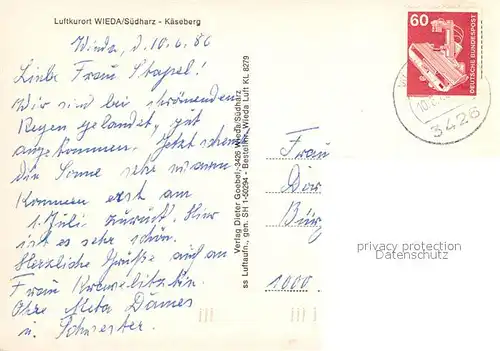 Luftkurort WIEDA/Südharz - Käseberg
Wieda, d. 10.6.86
Liebe Frau Stapel!
Wir sind bei strömenden
Regen gelandet, gut
angekommen. Jetzt scheint
die Sonne sehr warm
Kommen erst am
1. Juli zurück. Hier
ist es sehr schön.
Herzliche Grüße auch an
Frau
Ihre Meta Dames
u. Schwester.
Verlag Dieter Goebel, 3426 Wieda/Südharz
ss Luftaufn., gen. SH 1-50294 - Bestellnr. Wieda Luft KL 8279
60
DEUTSCHE BUNDESPOST
3426
Frau
Dör
Bürg
1000
privacy protection
Datenschutz